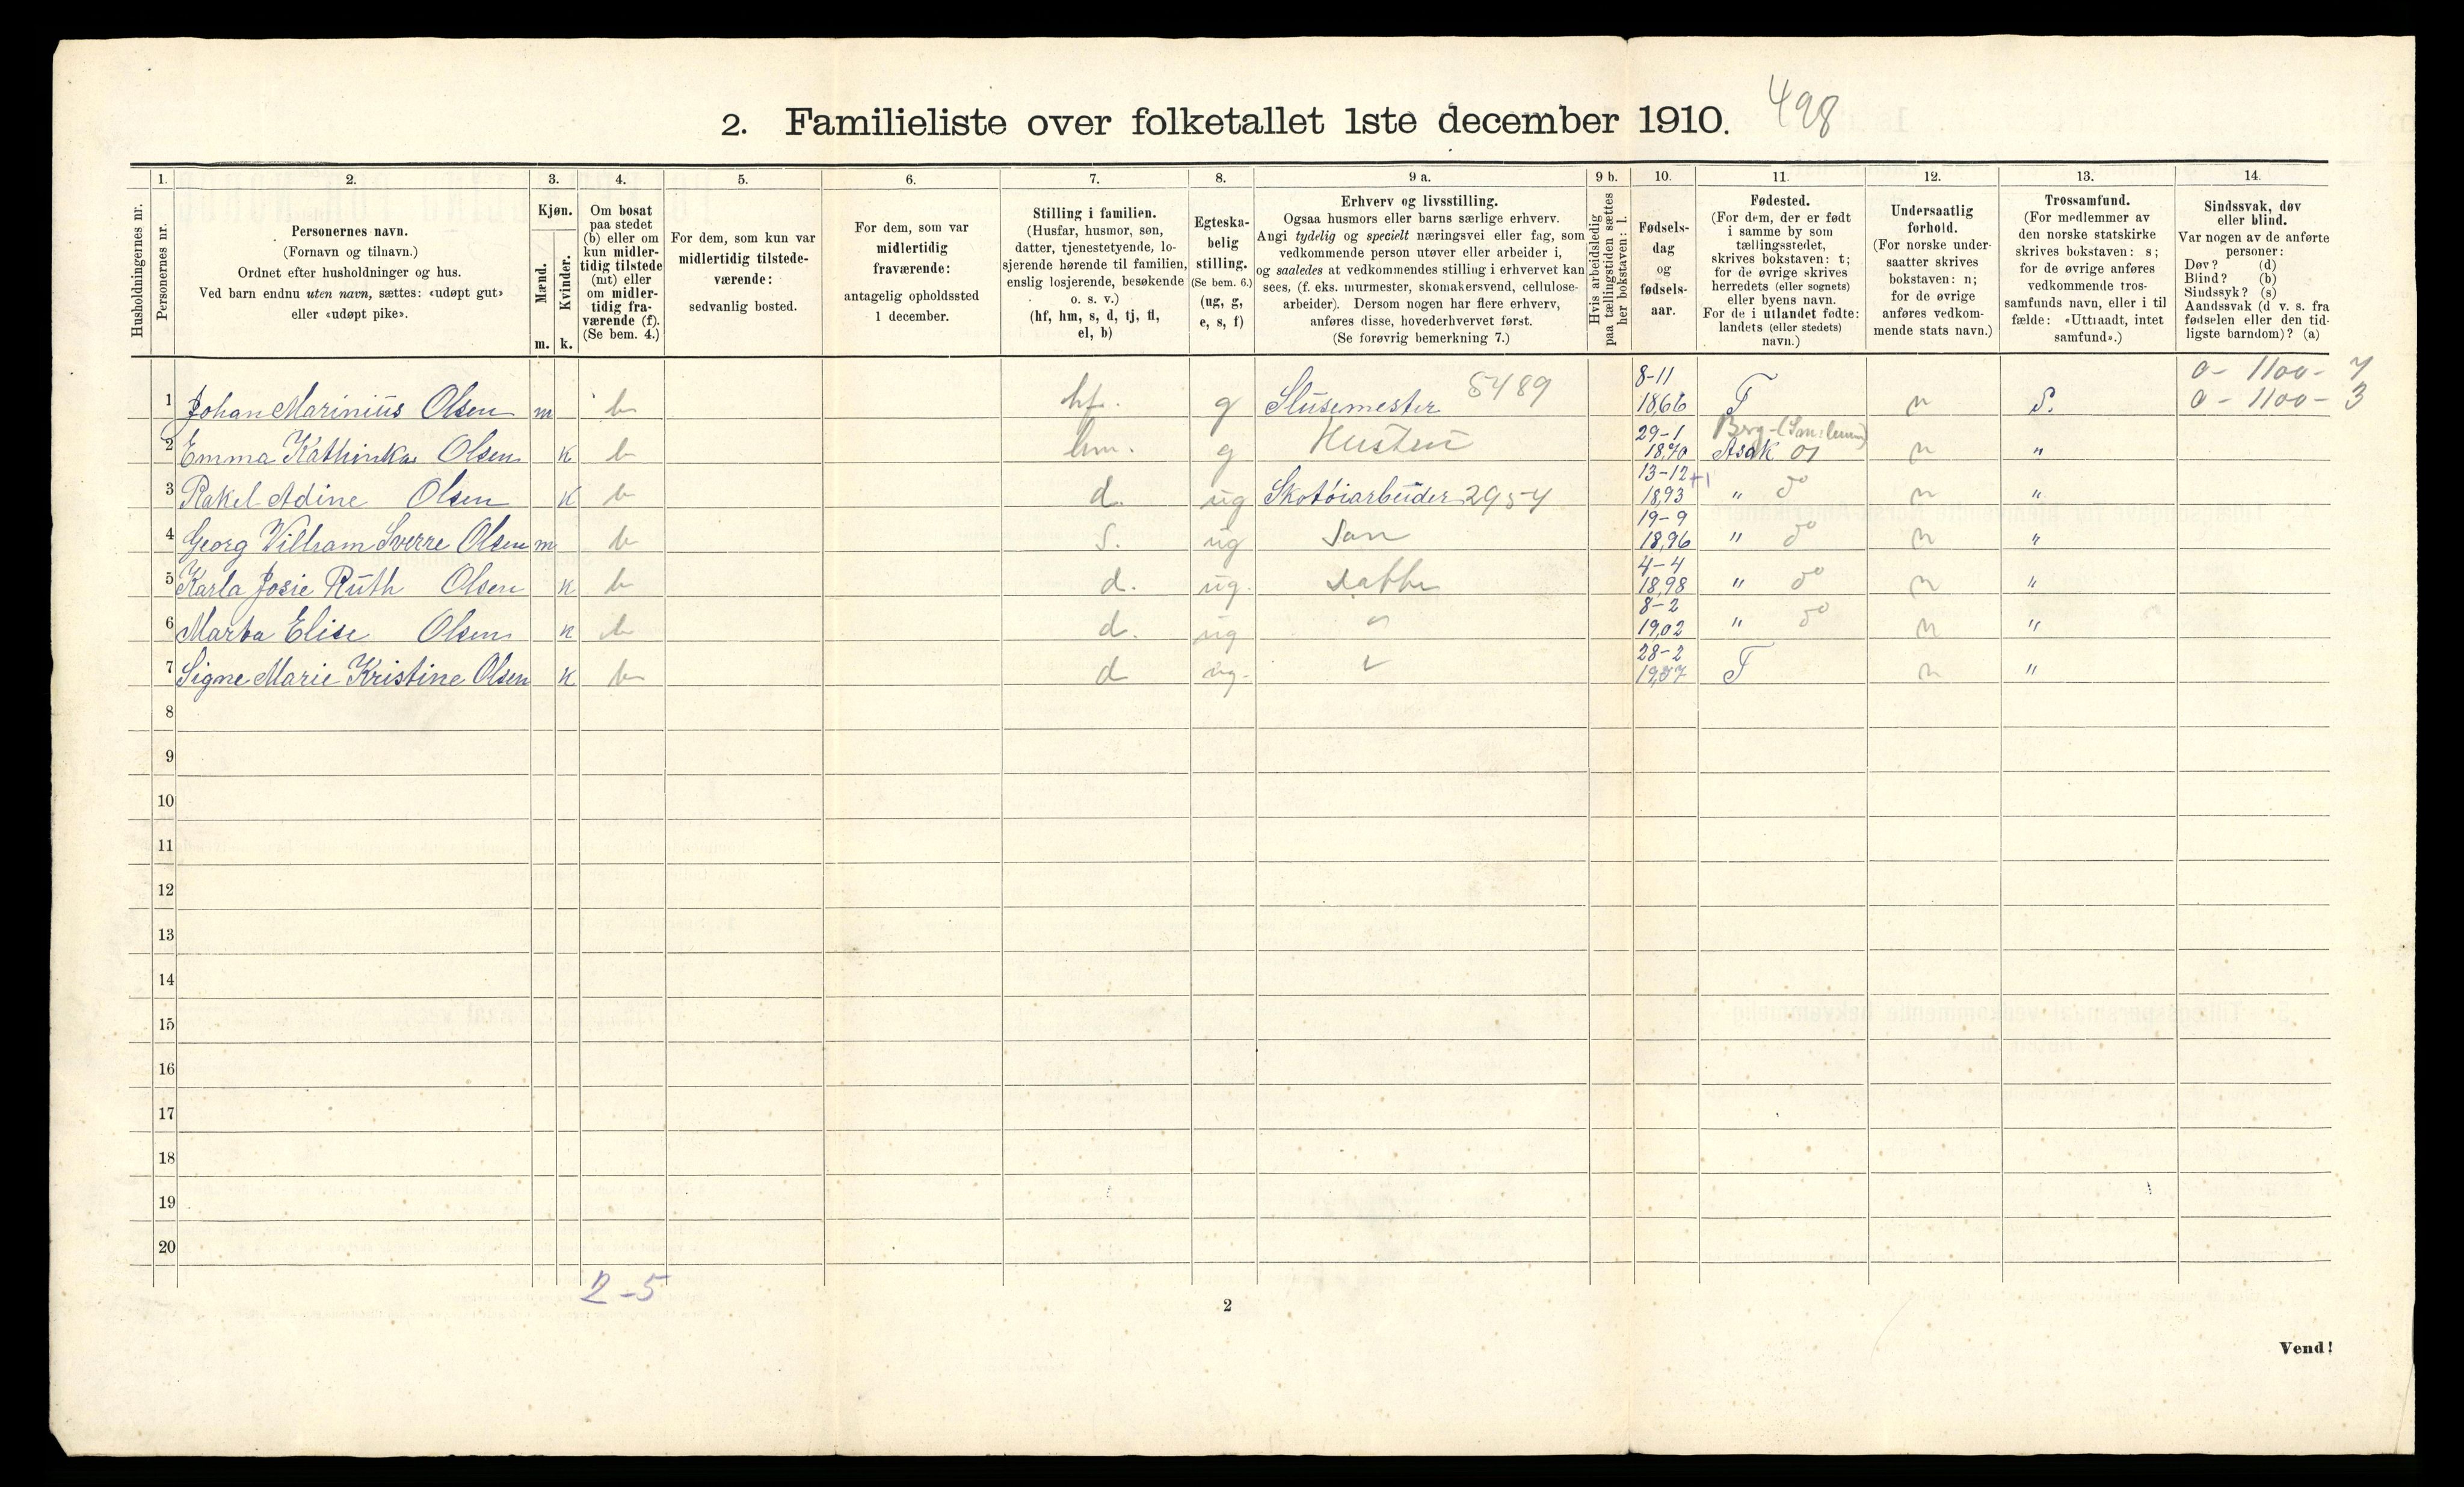 2. Familieliste over folketallet 1ste december 1910. 498
Husholdningernes nr.
1.
Personernes nr.
2.
Personernes navn.
(Fornavn og tilnavn.)
Ordnet efter husholdninger og hus.
Ved barn endnu uten navn, sættes: «udøpt gut»
eller «udøpt pike».
3.
Kjøn.
Mænd.
Kvinder.
m. k.
4.
Om bosat
paa stedet
(b) eller om
kun midler-
tidig tilstede
(mt) eller
om midler-
tidig fra-
værende (f).
(Se bem. 4.)
5.
For dem, som kun var
midlertidig tilstede-
værende:
sedvanlig bosted.
6.
For dem, som var
midlertidig
fraværende:
antagelig opholdssted
1 december.
7.
Stilling i familien.
(Husfar, husmor, søn,
datter, tjenestetyende, lo-
sjerende hørende til familien,
enslig losjerende, besøkende
o. s. v.)
(hf, hm, s, d, tj, fl,
el, b)
8.
Egteska-
belig
stilling.
(Se bem. 6.)
(ug, g,
e, s, f)
9 a.
Erhverv og livsstilling.
Ogsaa husmors eller barns særlige erhverv.
Angi tydelig og specielt næringsvei eller fag, som
vedkommende person utøver eller arbeider i,
og saaledes at vedkommendes stilling i erhvervet kan
sees, (f. eks. murmester, skomakersvend, cellulose-
arbeider). Dersom nogen har flere erhverv,
anføres disse, hovederhvervet først.
(Se forøvrig bemerkning 7.)
9 b.
Hvis arbeidsledig
paa tællingstiden sættes
her bokstaven: l.
10.
Fødsels-
dag
og
fødsels-
aar.
11.
Fødested.
(For dem, der er født
i samme by som
tællingsstedet,
skrives bokstaven: t;
for de øvrige skrives
herredets (eller sognets)
eller byens navn.
For de i utlandet fødte:
landets (eller stedets)
navn.)
12.
Undersaatlig
forhold.
(For norske under-
saatter skrives
bokstaven: n;
for de øvrige
anføres vedkom-
mende stats navn.)
13.
Trossamfund.
(For medlemmer av
den norske statskirke
skrives bokstaven: s;
for de øvrige anføres
vedkommende tros-
samfunds navn, eller i til
fælde: «Uttraadt, intet
samfund».)
14.
Sindssvak, døv
eller blind.
Var nogen av de anførte
personer:
Døv? (d)
Blind? (b)
Sindssyk? (s)
Aandssvak (d v. s. fra
fødselen eller den tid-
ligste barndom)? (a)
0 - 1100 - 4
1 Johan Marinius Olsen m b hf. g Slusemester 5489 8-11 1866 T n S. 0 - 1100 - 3
2 Emma Kathinka Olsen k b hm. g Hustru 29-1 1870 Berg Asak n "
3 Rakel Adine Olsen k b d. ug Skotöiarbeider 2954 13-12 1893 +1 " do n "
4 Georg Vilham Sverre Olsen m b s. ug Søn 19-9 1896 " do n "
5 Karla Josie Ruth Olsen k b d. ug. Datter 4-4 1898 " do n "
6 Marta Elise Olsen k b d. ug " 8-2 1902 " do n "
7 Signe Marie Kristine Olsen k b d ug- 28-2 1907 T n "
8
9
10
11
12
13
14
15
16
17
18
19
20
2-5
2
Vend!